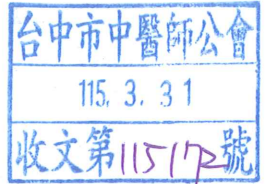 台中市中醫師公會
115. 3. 31
收文第115172號